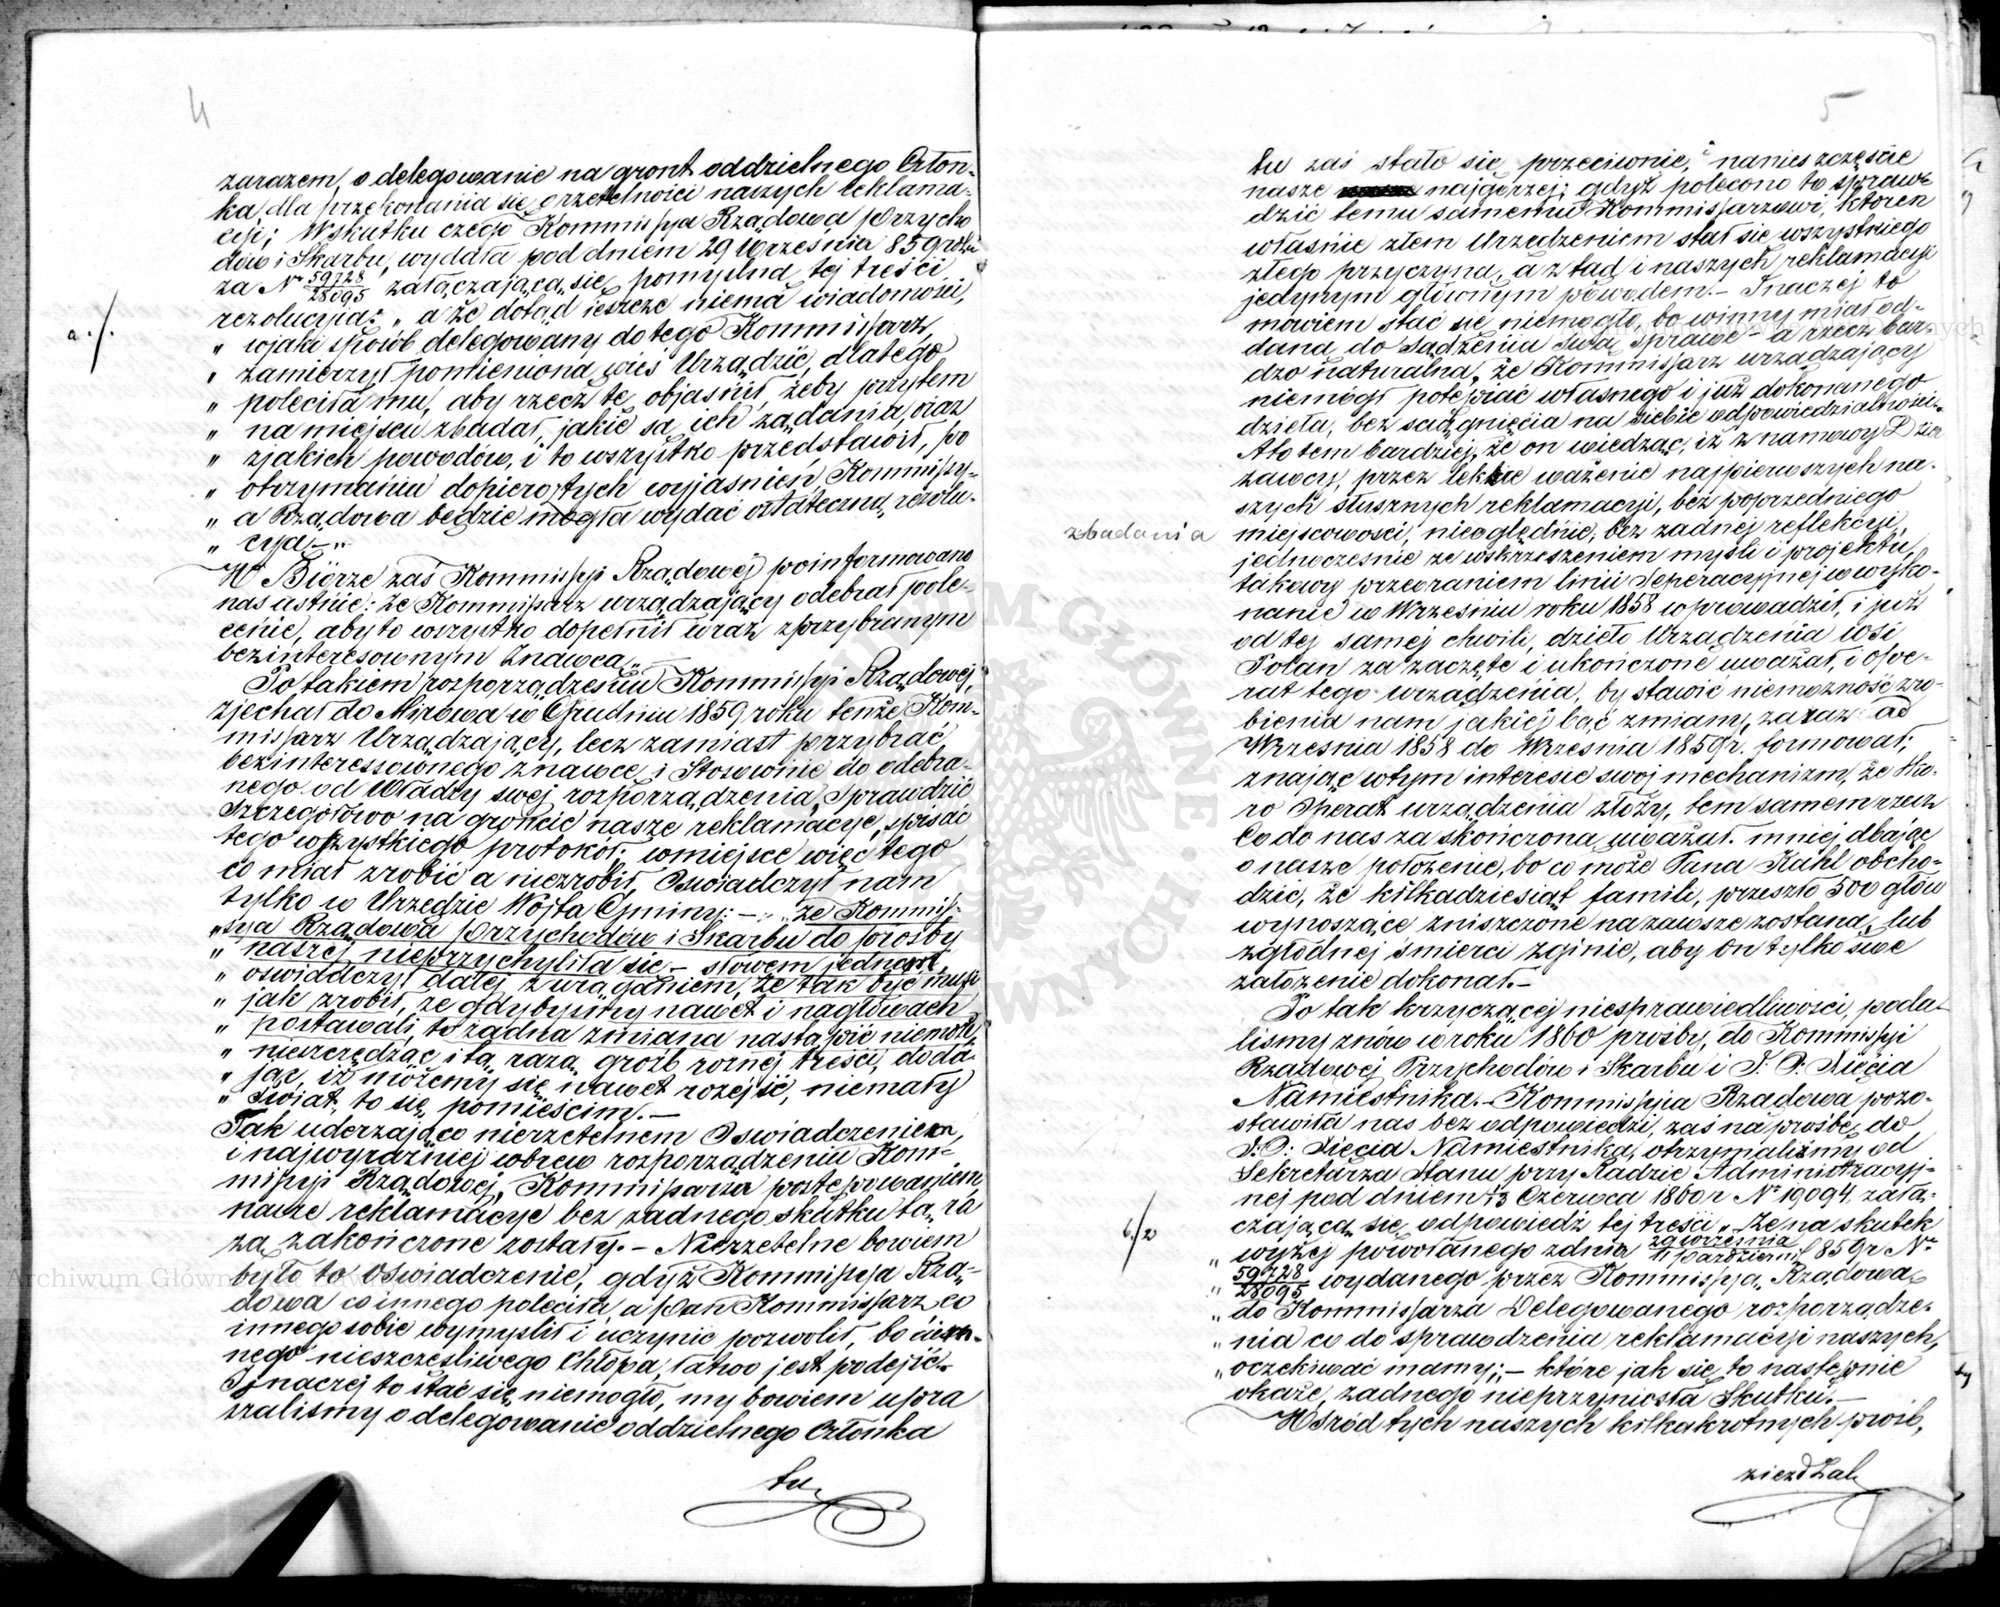 4
zarazem, o delegowanie na gront oddzielnego Człon-
ka, dla przekonania się o rzetelności naszych reklama-
cyi; Wskutku czego Kommissya Rządowa Przycho
dów i Skarbu, wydała pod dniem 29 Września 859 roku
za Nr 59728/28095 załączającą się pomyślną tej treści
rezolucyią: „a że dotąd ieszcze niema wiadomości,
a./.
„ wjaki sposób delegowany do tego Kommissarz,
„ zamierzył pomienioną wieś Urządzić, dlatego
„ poleciła mu, aby rzecz tę objaśnił, żeby przytem
„ na miejscu zbadał, jakie są ich żądania, oraz
„ zjakich powodów, i to wszystko przedstawił, po
„ otrzymaniu dopiero tych wyjaśnień Kommissy-
„ a Rządowa będzie mogła wydać ostateczną rezolu-
„ cyą.–„
W Biórze zaś Kommissyi Rządowej poinformowano
nas ustnie: że Kommissarz urządzający odebrał pole-
cenie, aby to wszystko dopełnił wraz zprzybranym
bezinteresownym Znawcą.„
Po takiem rozporządzeniu Kommissyi Rządowej,
zjechał do Mirowa w Grudniu 1859 roku tenże Kom-
missarz Urządzający, lecz zamiast przybrać
bezinteressownego znawcę i Stosownie do odebra-
nego od Władzy swej rozporządzenia, Sprawdzić
Szczegółowo na gróncie nasze reklamacye, spisać
tego wszystkiego protokół; wmiejsce więc tego
co miał zrobić a niezrobił, Oświadczył nam
tylko w Urzędzie Wójta Gminy: – „że Kommis-
„sya Rządowa Przychodów i Skarbu do prośby
„ naszej nieprzychyliła się – słowem jednem,
„ oświadczył dalej z urąganiem, że tak być musi
„ jak zrobił, że gdybyśmy nawet i nagłowach
„ postawali, to żadna zmiana nastąpić niemoże,
„ nieszczędząc i tą razą gróźb różnej treści, doda-
„ jąc, iż możemy się nawet rozejść, niemały
„ Świat, to się pomieścim.–
Tak uderzająco nierzetelnem Oświadczeniem,
i najwyraźniej wbrew rozporządzeniu Kom-
missyi Rządowej, Kommissarza postępowaniem
nasze reklamacye bez żadnego skutku tą ra
zą zakończone zostały.– Nierzetelne bowiem
było to Oświadczenie, gdyż Kommissya Rzą-
dowa co innego poleciła, a Pan Kommissarz co
innego sobie wymyślił i uczynić pozwolił, bo ciem-
nego nieszczęśliwego Chłopa, łatwo jest podejść.
Inaczej to stać się niemogło, my bowiem upra
szaliśmy o delegowanie oddzielnego Członka
tu
5
tu zaś stało się przeciwnie, i nanieszczęście
nasze najgorzej; gdyż polecono to spraw
dzić temu samemu Kommissarzowi, któren
właśnie złem Urządzeniem stał się wszystkiego
złego przyczyną, a ztąd i naszych reklamacyi
jedynym głównym powodem.– Inaczej to
mówiem stać się niemogło, bo winny miał od-
daną do Sądzenia Swą Sprawę – a rzecz bar-
dzo naturalna, że Kommissarz urządzający
niemógł potępiać własnego i już dokonanego
dzieła, bez sciągnięcia na siebie odpowiedzialności.
A to tem bardziej, że on wiedząc, iż z namowy Dzier
żawcy, przez lekkie ważenie najpierwszych na-
szych słusznych reklamacyi, bez poprzedniego
zbadania
miejscowości, nieoględnie, bez żadnej reflekcyi,
jednocześnie ze wskrzeszeniem myśli i projektu,
takowy przeoraniem linii Seperacyjnej w wyko-
nanie w Wrześniu roku 1858 wprowadził, i już
od tej samej chwili, dzieło Urządzenia Wsi
Polan za zaczęte i ukończone uważał, i Ope-
rat tego urządzenia, by stawić niemożność zro-
bienia nam jakiej bądź zmiany, zaraz od
Września 1858 do Września 1859r. formował;
znając wtym interesie swój mechanizm, że sko-
ro Operat urządzenia złoży, tem samem rzecz
co do nas za skończoną uważał. mniej dbając
o nasze położenie, bo co może Pana Kühl obcho-
dzić, że kilkadziesiąt familii, przeszło 500 głów
wynoszące zniszczone nazawsze zostaną, lub
zgłodnej śmierci zginie, aby On tylko swe
założenie dokonał.–
Po tak krzyczącej niesprawiedliwości, poda-
liśmy znów w roku 1860 prośby, do Kommissyi
Rządowej Przychodów i Skarbu i J. O. Xięcia
Namiestnika.– Kommissyia Rządowa pozo-
stawiła nas bez odpowiedzi, zaś na prośbę do
J: O: Xięcia Namiestnika, otrzymaliśmy od
Sekretarza Stanu przy Radzie Administracyj-
nej pod dniem 1/13 Czerwca 1860r Nr 19094 załą-
czającą się odpowiedź tej treści „ Że na skutek
b./.
„ wyżej powołanego zdnia 29 września/11 Październi 859r Nr
„ 59728/28095 wydanego przez Kommissyą Rządową
„ do Kommissarza Delegowanego rozporządze-
„ nia co do sprawdzenia reklamacyi naszych,
„ oczekiwać mamy; – które jak się to następnie
okaże, żadnego nieprzyniosła Skutku.–
Wśród tych naszych kilkakrotnych prośb,
ziezdżał